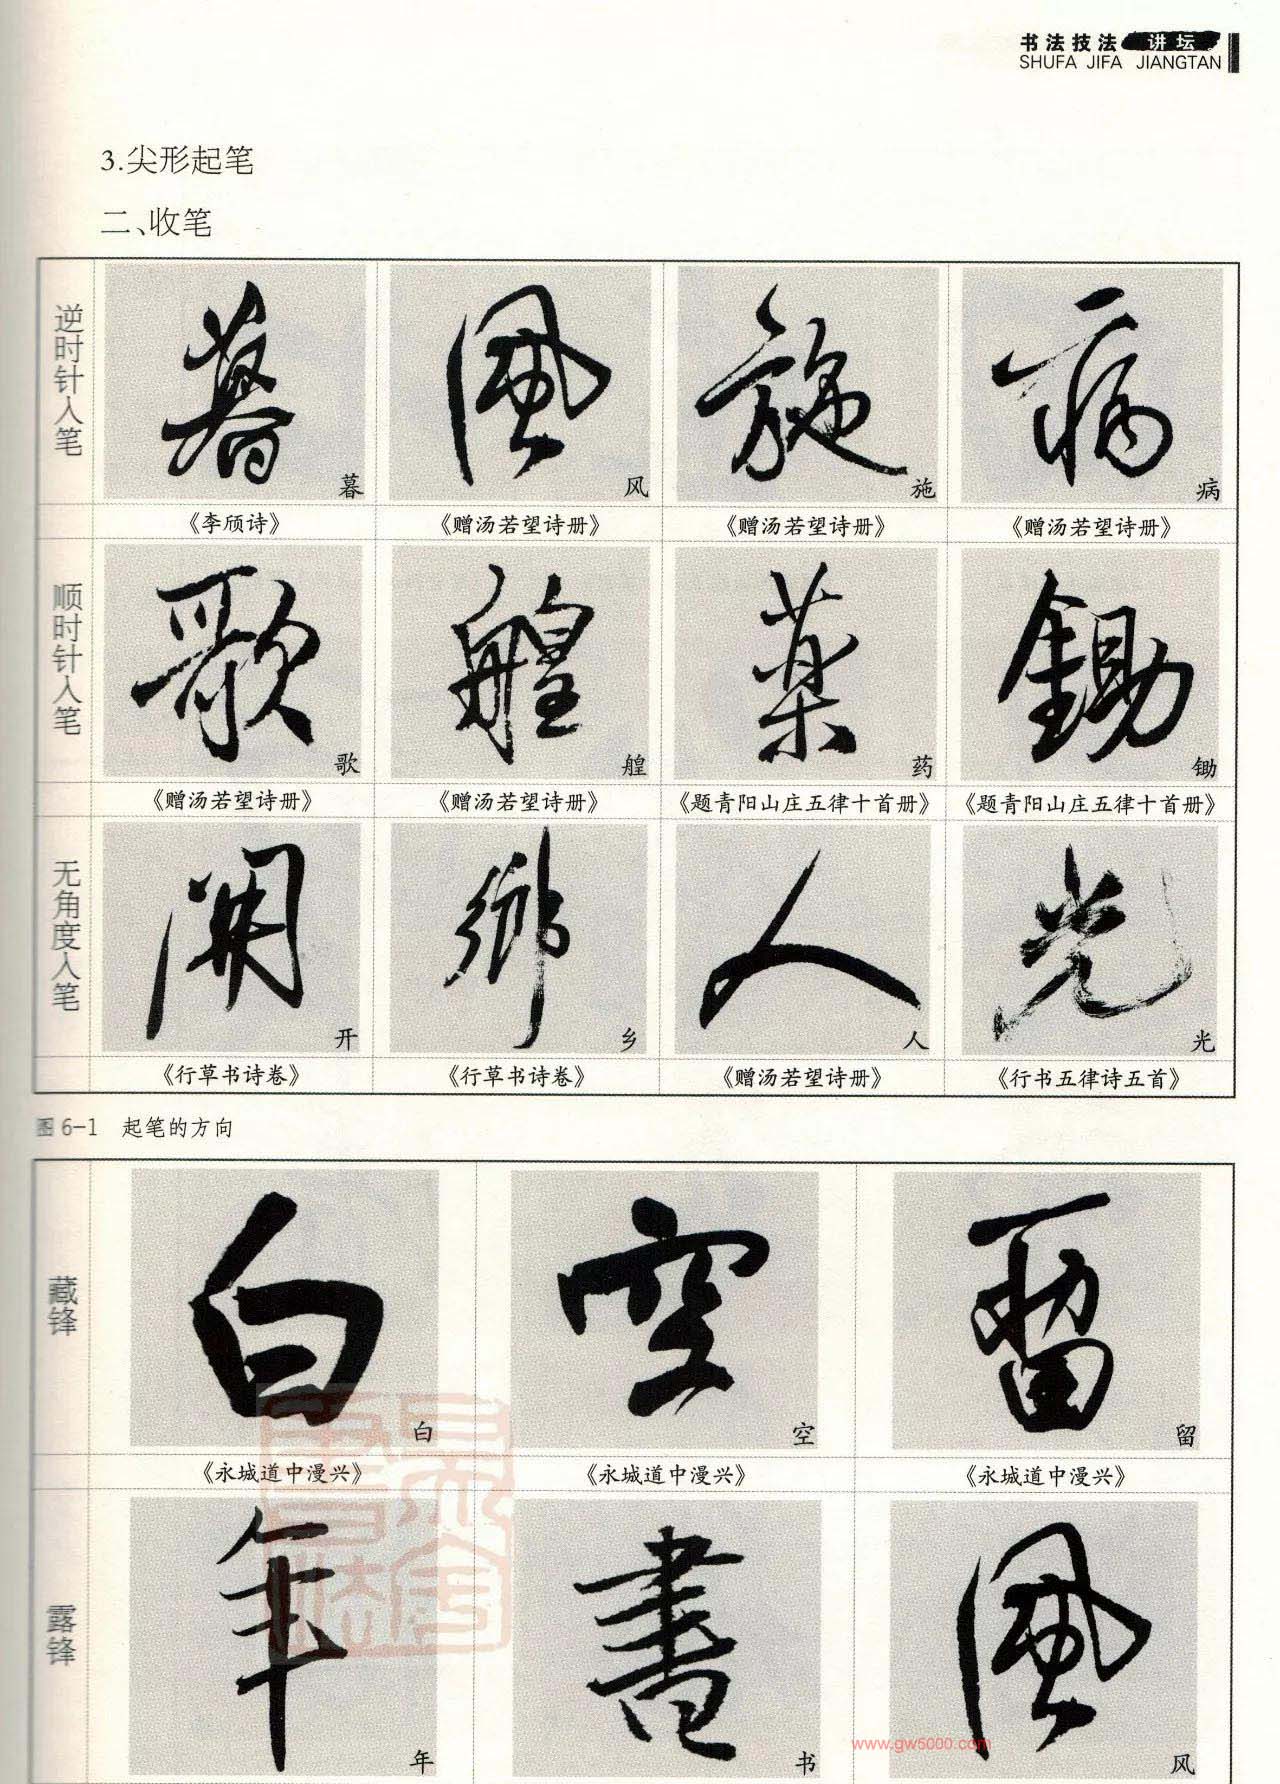 书法技法 讲坛
SHUFA JIFA JIANGTAN
3.尖形起笔
二、收笔
逆时针入笔
暮 风 施 病
《李颀诗》 《赠汤若望诗册》 《赠汤若望诗册》 《赠汤若望诗册》
顺时针入笔
歌 艎 药 锄
《赠汤若望诗册》 《赠汤若望诗册》 《题青阳山庄五律十首册》 《题青阳山庄五律十首册》
无角度入笔
开 乡 人 光
《行草书诗卷》 《行草书诗卷》 《赠汤若望诗册》 《行书五律诗五首》
图 6-1 起笔的方向
藏锋
白 空 留
《永城道中漫兴》 《永城道中漫兴》 《永城道中漫兴》
露锋
年 书 风
www.gw5000.com